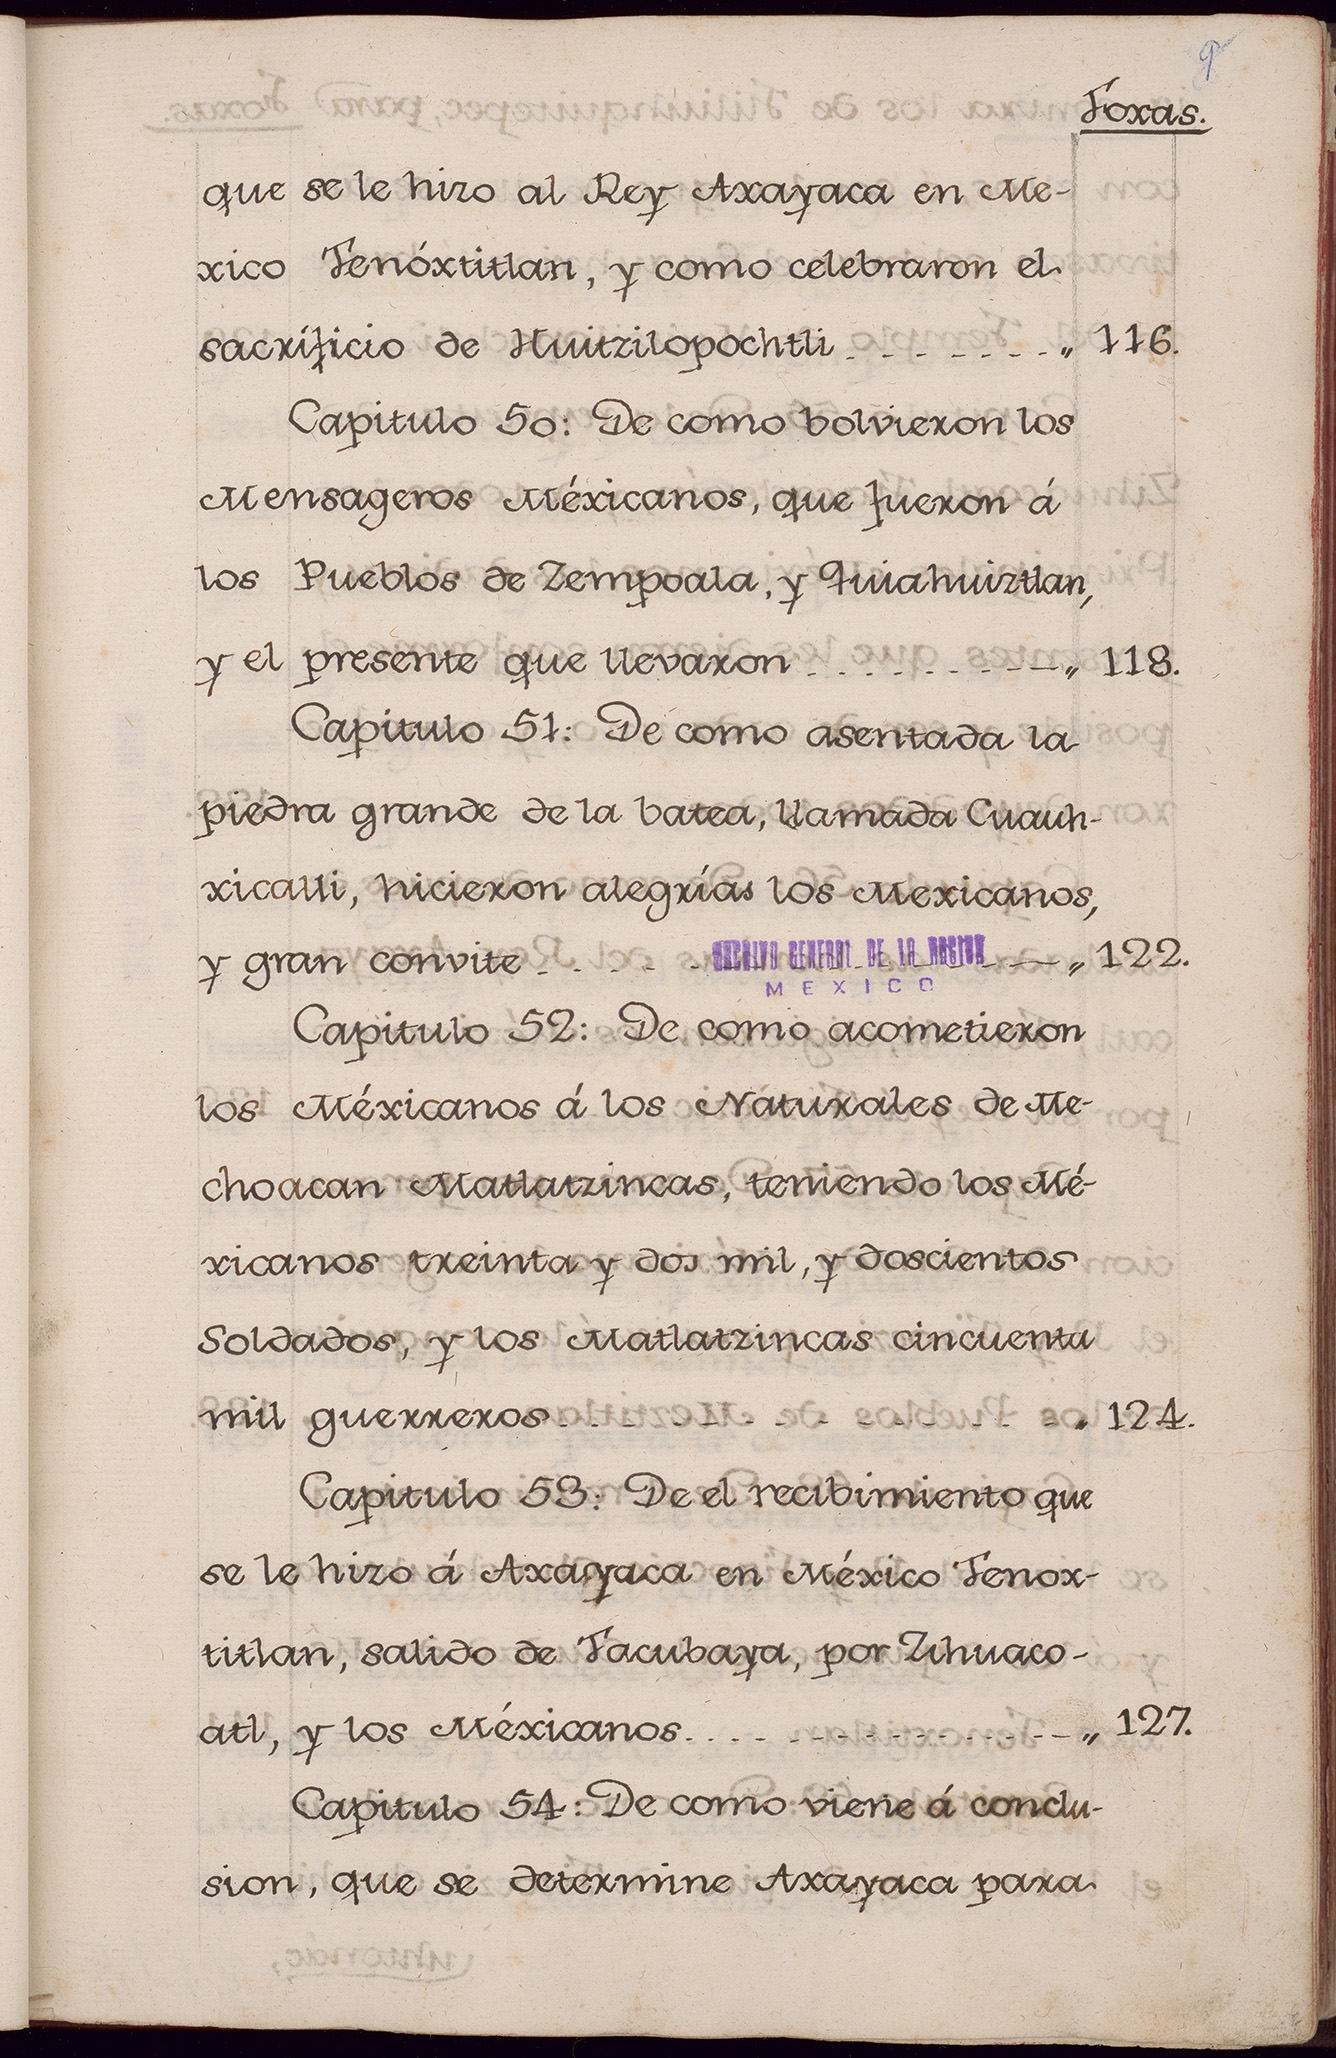 9
Foxas.
que se le hizo al Rey Axayaca en Me-
xico Tenóxtitlan, y como celebraron el
sacrificio de Huitzilopochtli . . . . . . . „ 116.
Capitulo 50: De como bolvieron los
Mensageros Méxicanos, que fueron á
los Pueblos de Zempoala, y Quiahuiztlan,
y el presente que llevaron . . . . . . . . — „ 118.
Capitulo 51: De como asentada la
piedra grande de la batea, llamada Cuauh-
xicalli, hicieron alegrías los Mexicanos,
y gran convite . . . . . . . . . . . . — „ 122.
ARCHIVO GENERAL DE LA NACION
MEXICO
Capitulo 52: De como acometieron
los Méxicanos á los Naturales de Me-
choacan Matlatzincas, teniendo los Mé-
xicanos treinta y dos mil, y doscientos
Soldados, y los Matlatzincas cincuenta
mil guerreros . . . . . . . . . . . . . . „ 124.
Capitulo 53: De el recibimiento que
se le hizo á Axayaca en México Tenox-
titlan, salido de Tacubaya, por Zihuaco-
atl, y los Méxicanos . . . . . . . . . . . . — „ 127.
Capitulo 54: De como viene á conclu-
sion, que se determine Axayaca para